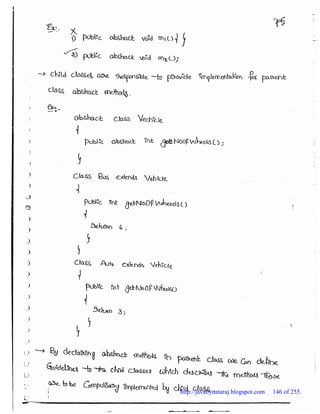 75
Ex:-
X
1) public abstract void m1() { }
✓ 2) public abstract void m2();
→ child classes are responsible to provide implementation for parent
class abstract methods.
Ex:-
abstract class Vechicle
{
public abstract int getNoOfWheels();
}
class Bus extends Vehicle
{
public int getNoOfWheels()
{
return 6;
}
}
class Auto extends Vehicle
{
public int getNoOfWheels()
{
return 3;
}
}
→ By declaring abstract methods in parent class we can define
Guidelines to the child classes which describes the methods those
are to be Compulsory implemented by child class.
http://javabynataraj.blogspot.com 146 of 255.